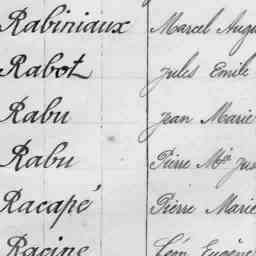 Rabiniaux Marcel Augu
Rabot Jules Emile
Rabu Jean Marie
Rabu Pierre Mie Jus
Racapé Pierre Marie
Racine Léon Eugène